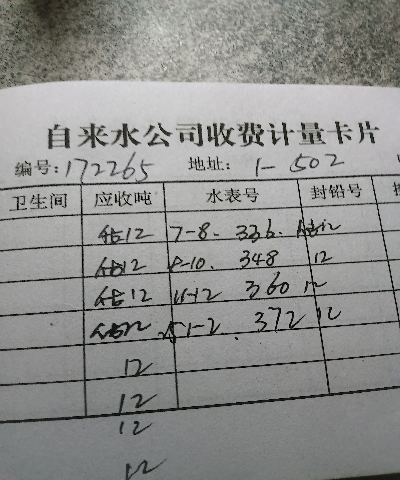 自来水公司收费计量卡片
编号:172265 地址: 1-502
卫生间 应收吨 水表号 封铅号
估12 7-8. 336. 12
估12 9-10. 348 12
估12 11-12 360 12
估12 1-2. 372 12
12
12
12
12